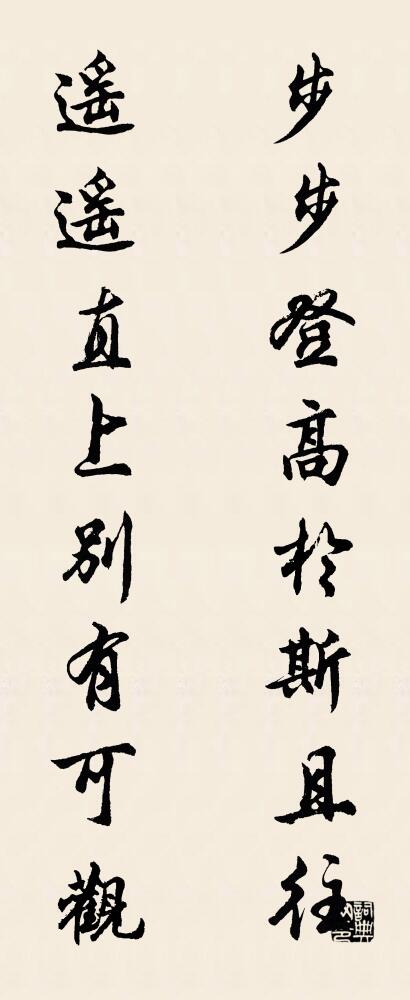 步步登高於斯且往
遥遥直上別有可觀